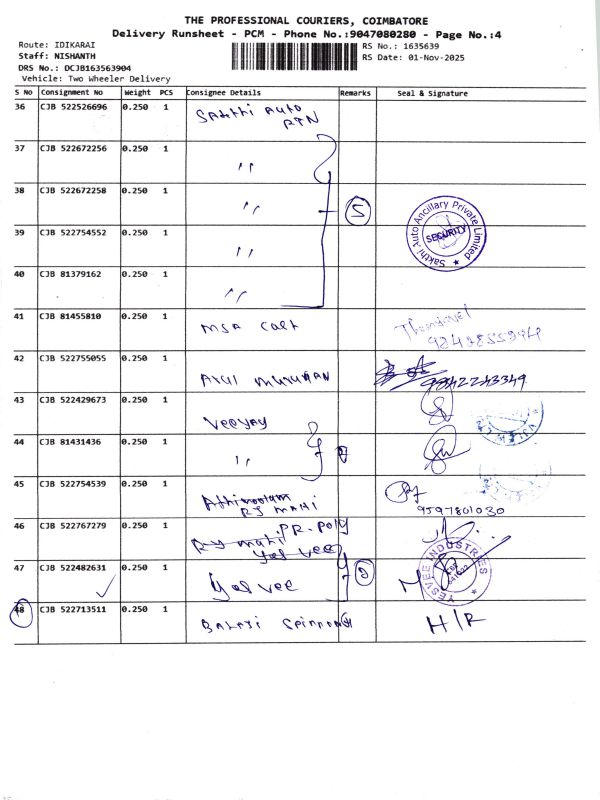 THE PROFESSIONAL COURIERS, COIMBATORE
Delivery Runsheet - PCM - Phone No.:9047080280 - Page No.:4
Route: IDIKARAI
Staff: NISHANTH
DRS No.: DCJB163563904
Vehicle: Two Wheeler Delivery
RS No.: 1635639
RS Date: 01-Nov-2025
S No Consignment No Weight PCS Consignee Details Remarks Seal & Signature
36 CJB 522526696 0.250 1 Sakthi Auto
37 CJB 522672256 0.250 1 ,,
38 CJB 522672258 0.250 1 ,, 5
Sakthi Auto Ancillary Private Limited
SECURITY
39 CJB 522754552 0.250 1 ,,
40 CJB 81379162 0.250 1 ,,
41 CJB 81455810 0.250 1 MSA
42 CJB 522755055 0.250 1 Arul Murugan 9842243349
43 CJB 522429673 0.250 1 Veejay
44 CJB 81431436 0.250 1 ,,
45 CJB 522754539 0.250 1 Athimoolam
9597801030
46 CJB 522767279 0.250 1 PR. Poly
Yes Vee
47 CJB 522482631 0.250 1 Yes Vee 2
YESVEE INDUSTRIES
48 CJB 522713511 0.250 1 Balaji H/R